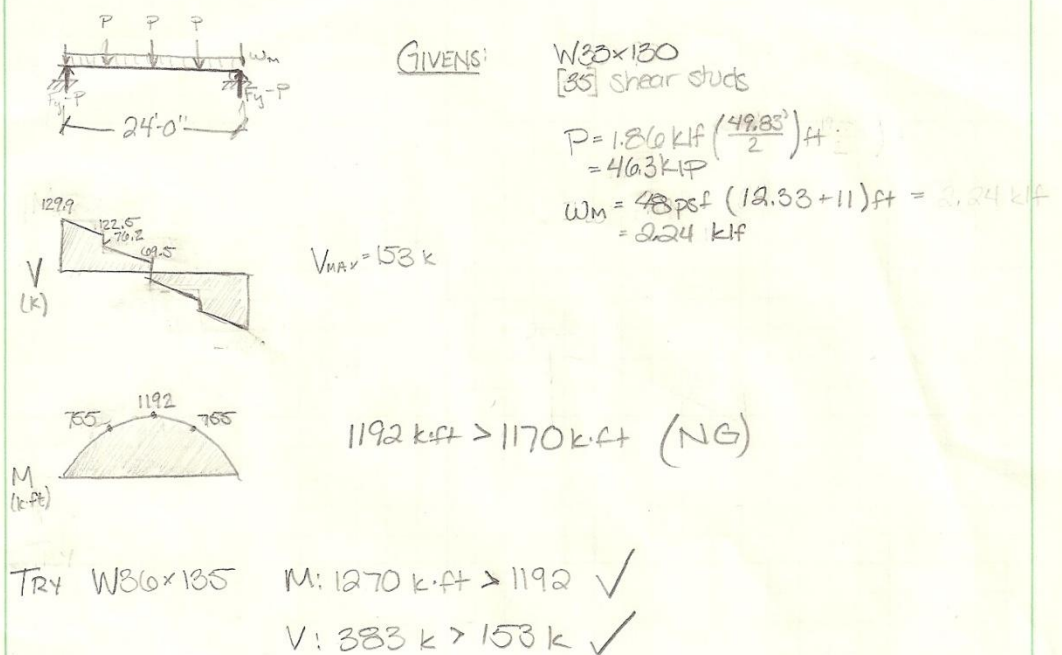 P P P
ωm
Fy-P Fy-P
24'-0"
GIVENS:
W33×130
[35] shear studs
P = 1.86 klf (49.83'/2) ft
= 46.3 KIP
ωm = 48 psf (12.33 + 11) ft = 2.24 klf
= 2.24 klf
129.9
122.5
76.2
69.5
V
(K)
VMAX = 153 k
1192
755 755
M
(k·ft)
1192 k·ft > 1170 k·ft (NG)
TRY W36×135 M: 1270 k·ft > 1192 ✓
V: 383 k > 153 k ✓